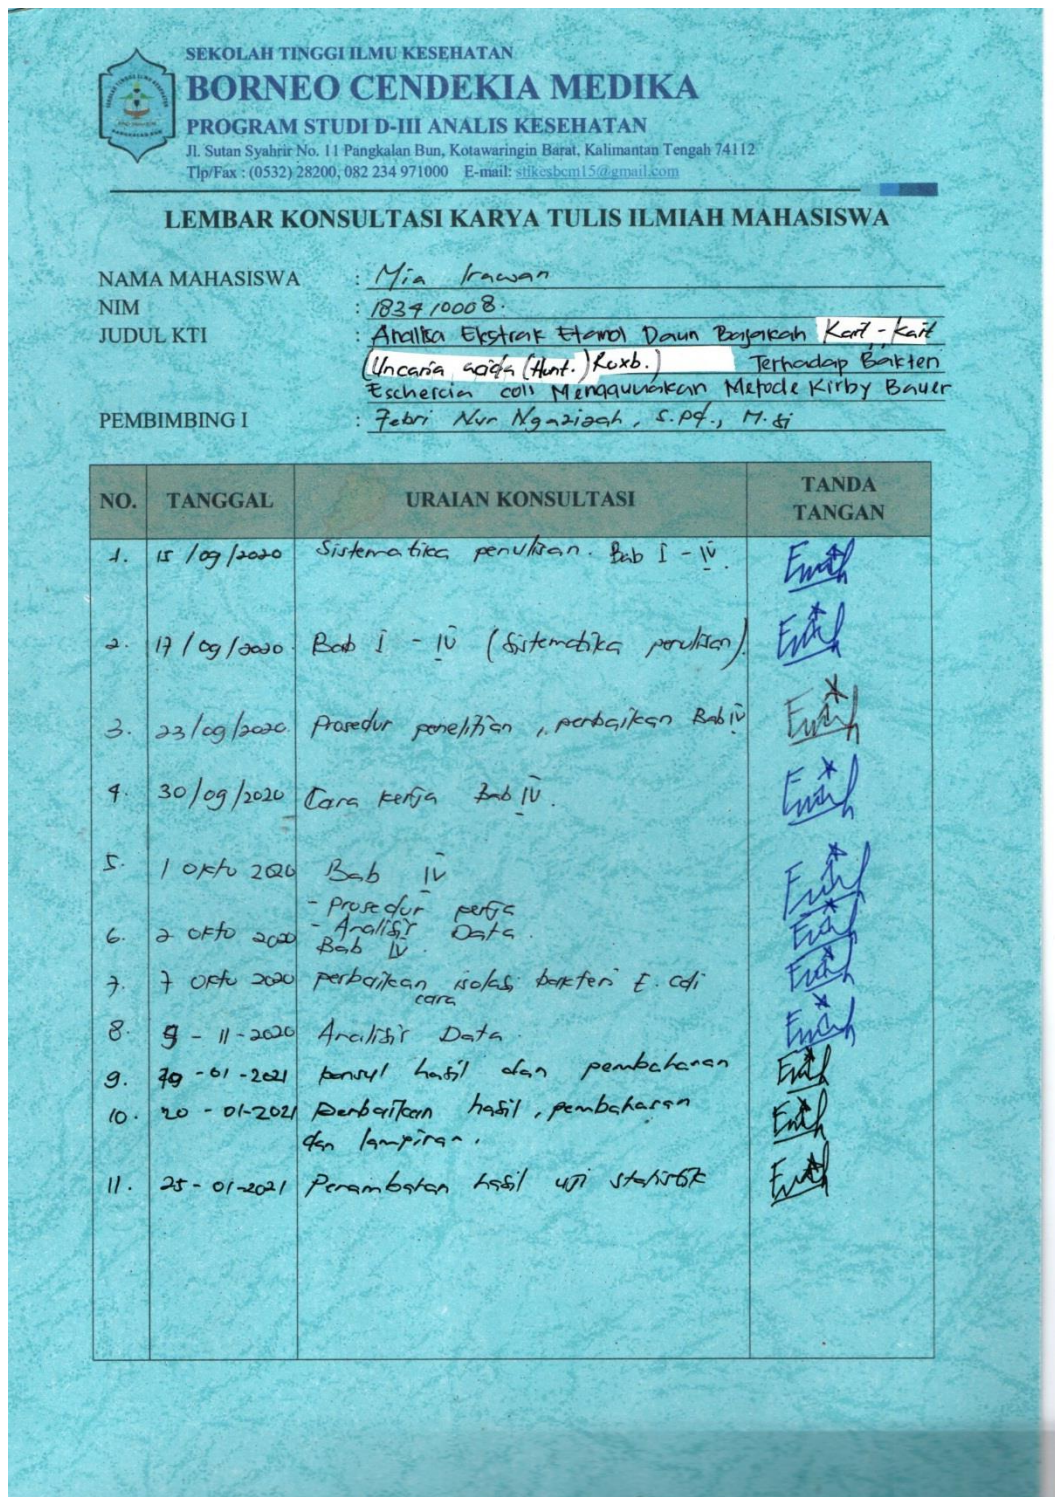 SEKOLAH TINGGI ILMU KESEHATAN
BORNEO CENDEKIA MEDIKA
PROGRAM STUDI D-III ANALIS KESEHATAN
Jl. Sutan Syahrir No. 11 Pangkalan Bun, Kotawaringin Barat, Kalimantan Tengah 74112
Tlp/Fax : (0532) 28200, 082 234 971000 E-mail: stikesbcm15@gmail.com
LEMBAR KONSULTASI KARYA TULIS ILMIAH MAHASISWA
NAMA MAHASISWA : Mia Irawan
NIM : 183410008.
JUDUL KTI : Analisa Ekstrak Etanol Daun Bajakah Kait - Kait
(Uncaria acida (Hunt.) Roxb.) Terhadap Bakteri
Eschercia coli Menggunakan Metode Kirby Bauer
PEMBIMBING I : Febri Nur Ngazizah, S.Pd., M.Si
NO. TANGGAL URAIAN KONSULTASI TANDA TANGAN
1. 15/09/2020 Sistematika penulisan. Bab I - IV.
2. 17/09/2020 Bab I - IV (Sistematika penulisan).
3. 23/09/2020. Prosedur penelitian, perbaikan Bab IV
4. 30/09/2020 Cara kerja Bab IV.
5. 1 Okto 2020 Bab IV
- Prosedur kerja
- Analisis Data.
6. 2 Okto 2020 Bab IV.
7. 7 Okto 2020 perbaikan isolasi bakteri E. coli
cara
8. 9 - 11 - 2020 Analisis Data.
9. 19 - 01 - 2021 konsul hasil dan pembahasan
10. 20 - 01-2021 perbaikan hasil, pembahasan
dan lampiran.
11. 25 - 01-2021 hasil uji statistik